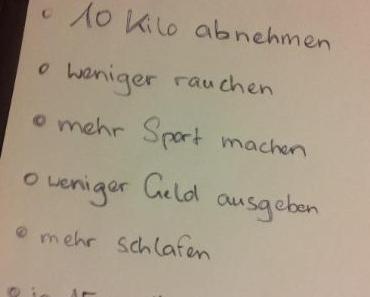 10 Kilo abnehmen
weniger rauchen
mehr Sport machen
weniger Geld ausgeben
mehr schlafen